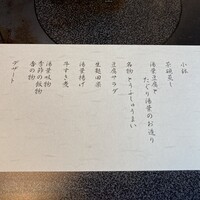 小鉢
茶碗蒸し
湯葉豆腐と
たぐり湯葉のお造り
名物
とうふしゅうまい
豆腐サラダ
生麩田楽
湯葉揚げ
牛すき煮
湯葉吸物
季節の飯物
香の物
デザート